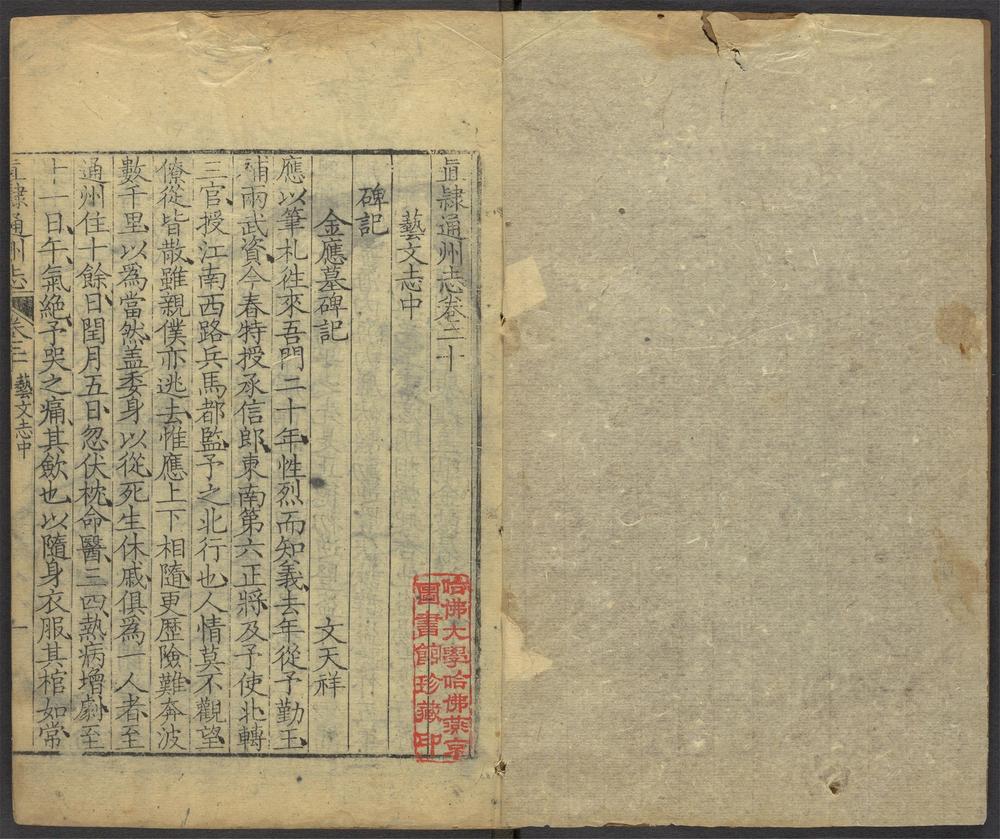 直隸通州志卷二十
藝文志中
碑記
金應墓碑記
文天祥
應以筆札徃來吾門二十年性烈而知義去年從予勤王
補兩武資今春特授承信郎東南第六正將及予使北轉
三官授江南西路兵馬都監予之北行也人情莫不觀望
僚從皆散雖親僕亦逃去惟應上下相隨更歷險難奔波
數千里以爲當然盖委身以從死生休戚俱爲一人者至
通州住十餘日閏月五日忽伏枕命醫三四熱病增劇至
十一日午氣絶予哭之痛其歛也以隨身衣服其棺如常
直隸通州志
藝文志中
一
哈佛大學哈佛燕京
圖書館珍藏印